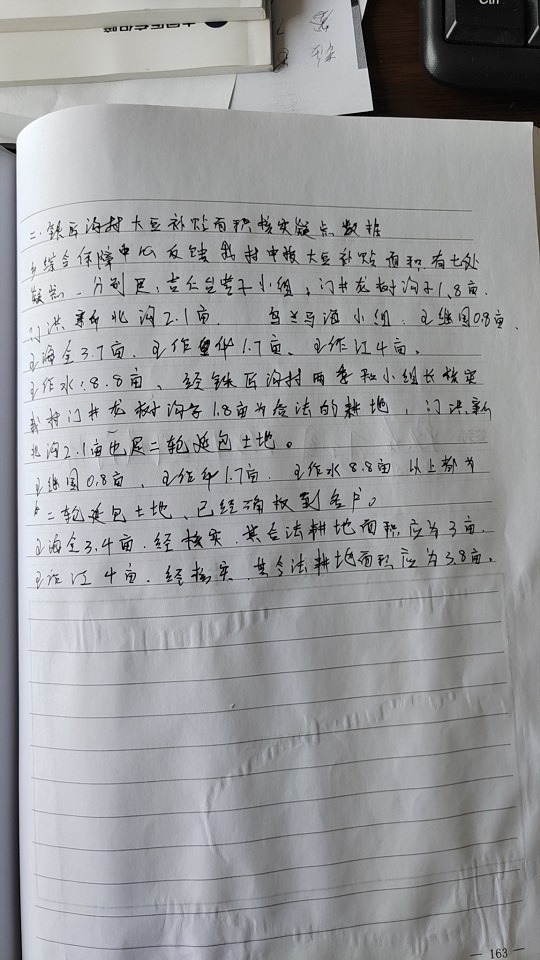 Ctrl
二、铁瓦沟村大豆补贴面积核实疑点数据
乡综合保障中心反馈我村申报大豆补贴面积有七处
疑点。分别是:小组,门井龙树沟子1.8亩.
门洪北沟2.1亩 小组:王继国0.8亩.
王海全3.7亩.王作1.7亩、王作江4亩。
王作水:8.8亩、经铁瓦沟村两委和小组长核实
我村门井龙树沟子1.8亩为合法的耕地,门洪
北沟2.1亩也是二轮延包土地。
王继国0.8亩,王作1.7亩.王作水8.8亩以上都为
二轮延包土地、已经确权到各户。
王海全3.4亩.经核实.其合法耕地面积应为3亩.
王作江4亩.经核实.其合法耕地面积应为3.8亩。
— 163 —